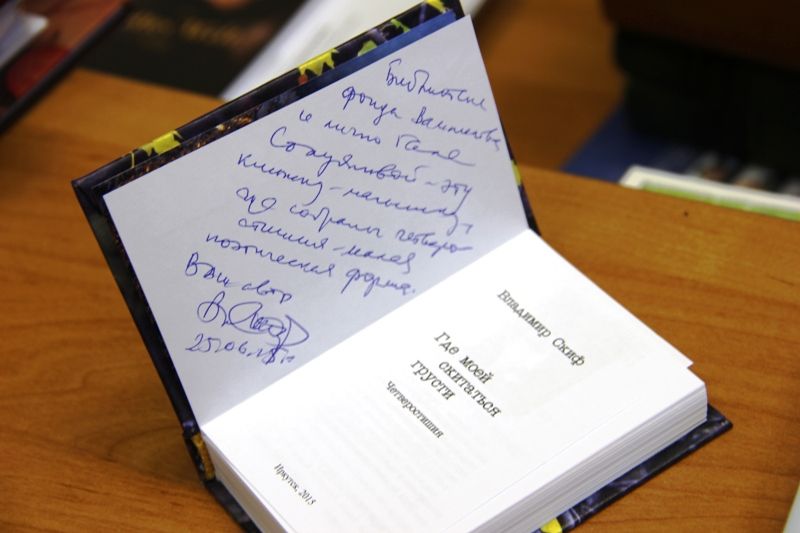 Библиотеке
фонда Вампилова
и лично Гале
Солуяновой – эту
книжку – малышку,
где собраны четверо-
стишия – малая
поэтическая форма.
Ваш автор
25.06.15г
Владимир Скиф
Где моей
скитаться
грусти
Четверостишия
Иркутск, 2015